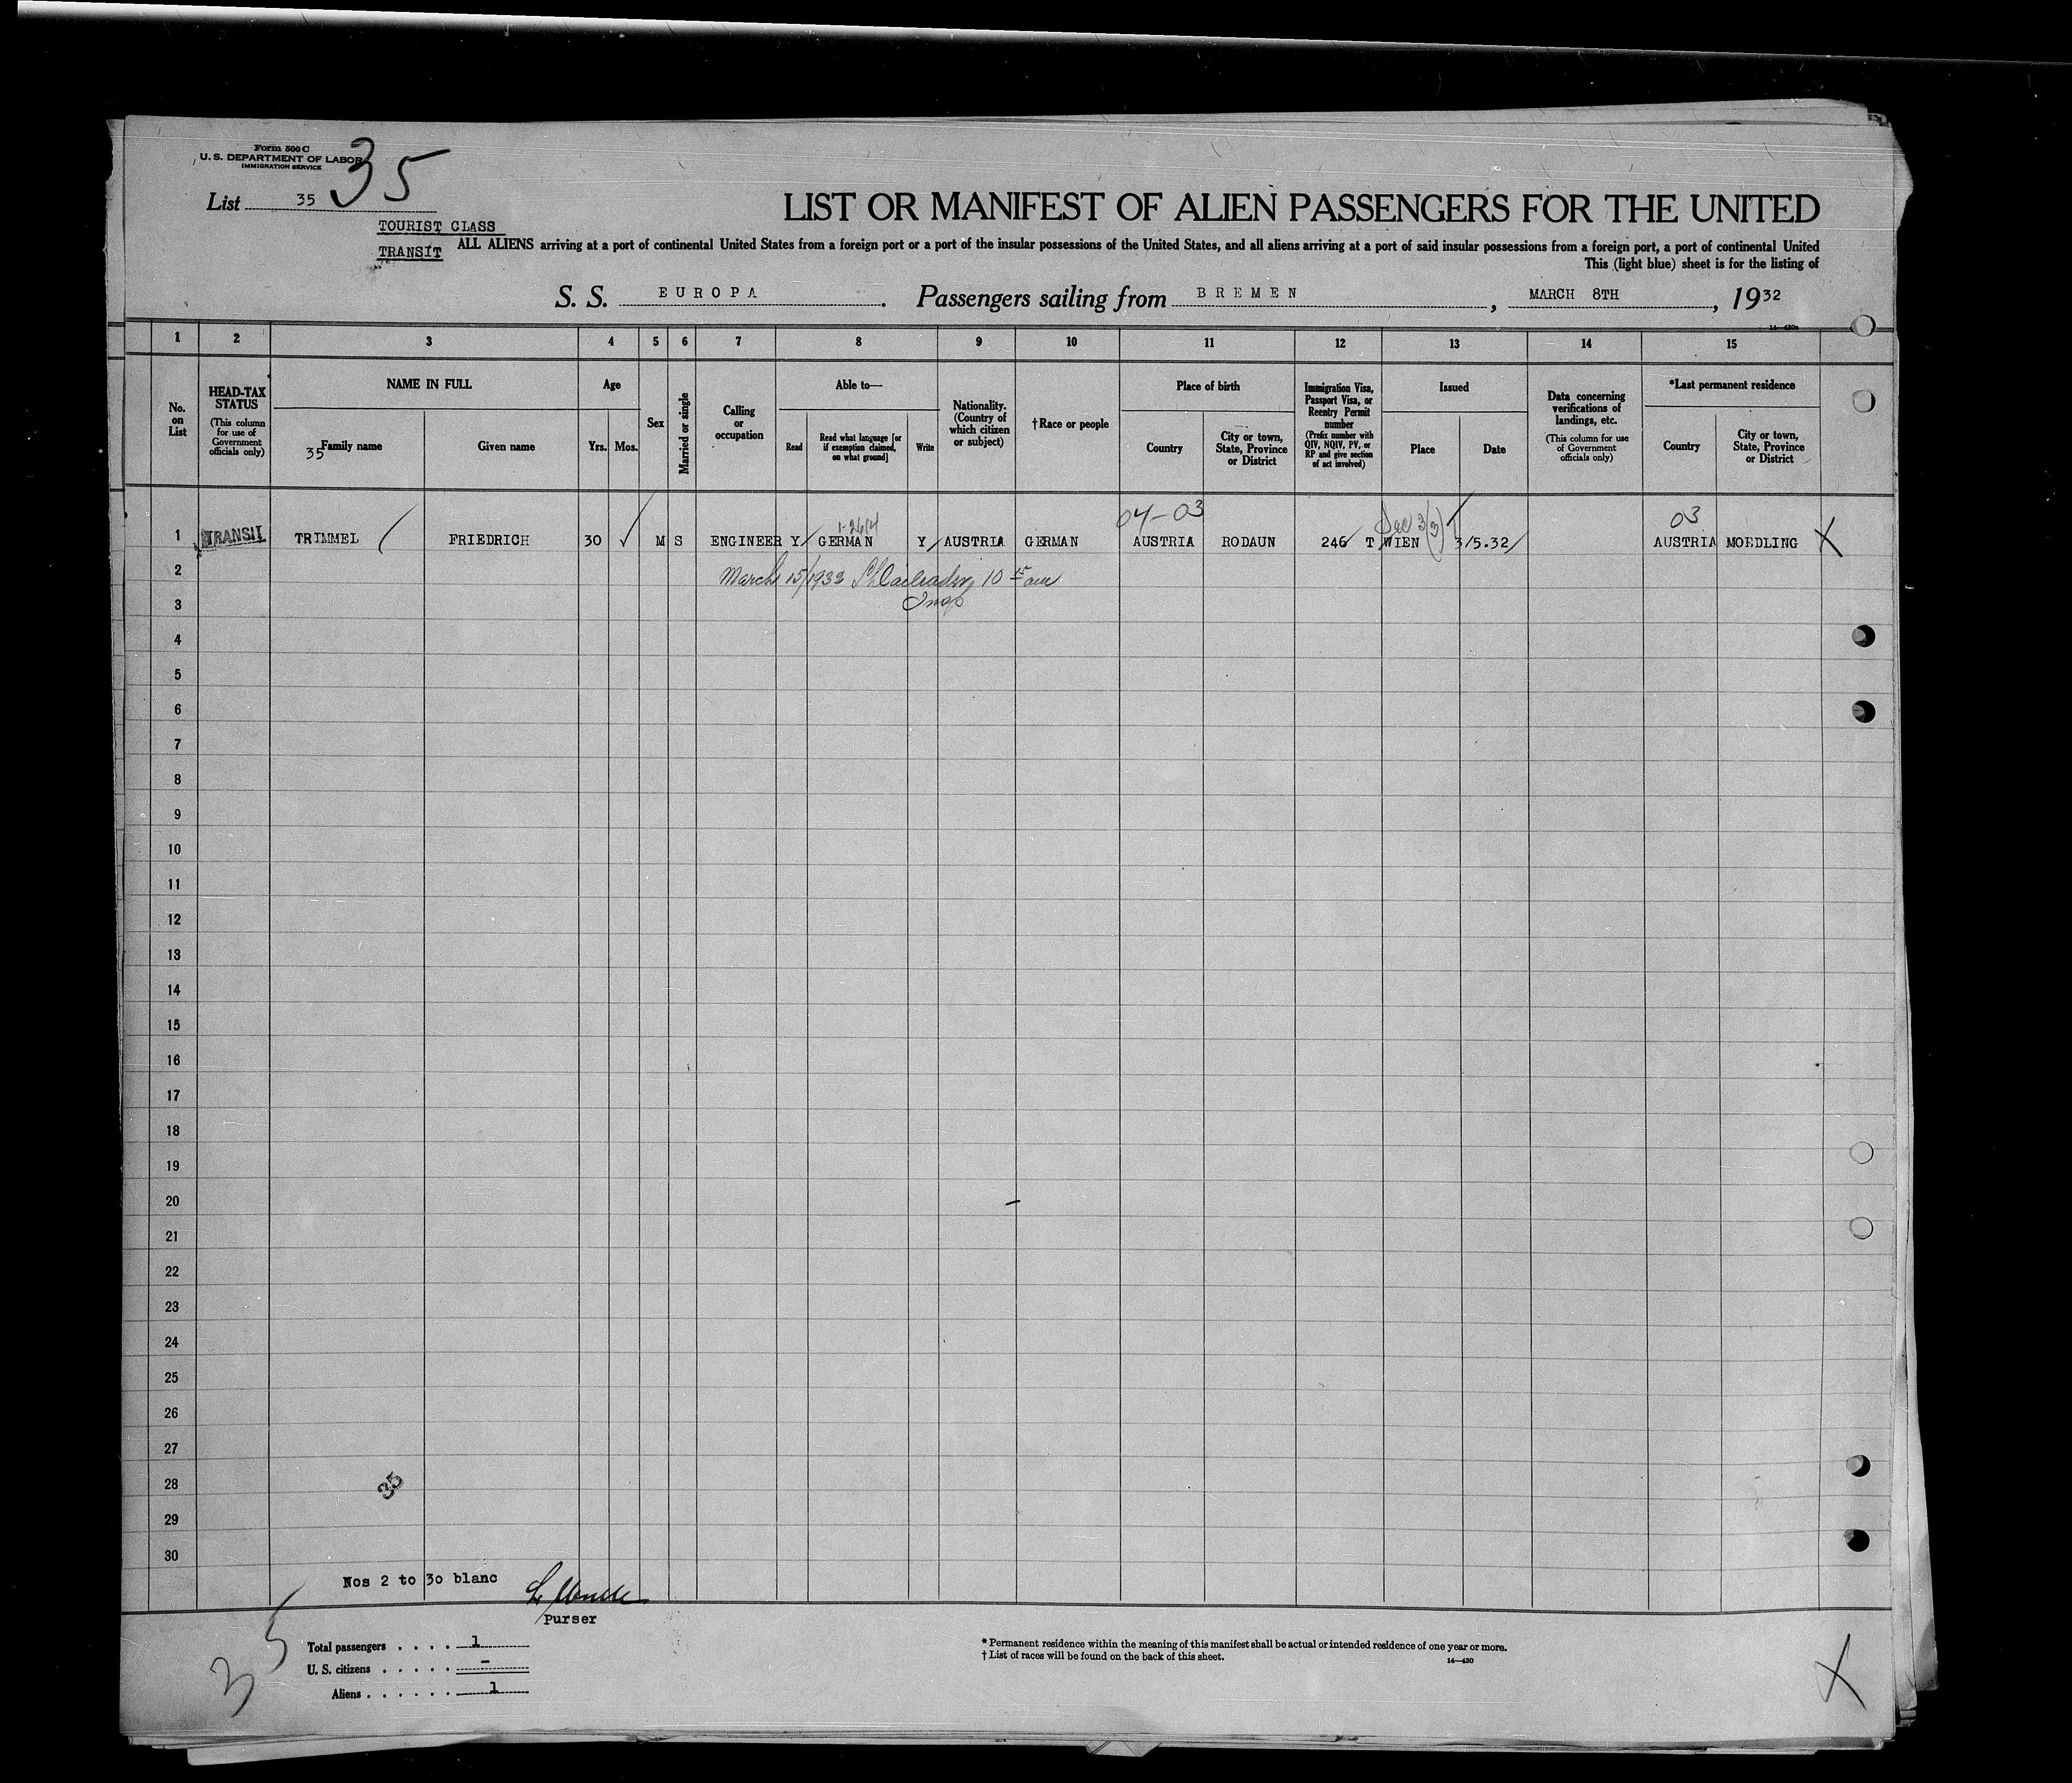 Form 500 C
U. S. DEPARTMENT OF LABOR
IMMIGRATION SERVICE
List 35 35
TOURIST CLASS
TRANSIT
LIST OR MANIFEST OF ALIEN PASSENGERS FOR THE UNITED
ALL ALIENS arriving at a port of continental United States from a foreign port or a port of the insular possessions of the United States, and all aliens arriving at a port of said insular possessions from a foreign port, a port of continental United
This (light blue) sheet is for the listing of
S. S. EUROPA. Passengers sailing from BREMEN, MARCH 8TH, 1932
1 2 3 4 5 6 7 8 9 10 11 12 13 14 15
No. on List
HEAD-TAX STATUS
(This column for use of Government officials only)
NAME IN FULL
35 Family name
Given name
Age
Yrs. Mos.
Sex
Married or single
Calling or occupation
Able to—
Read
Read what language [or if exemption claimed, on what ground]
Write
Nationality. (Country of which citizen or subject)
†Race or people
Place of birth
Country
City or town, State, Province or District
Immigration Visa, Passport Visa, or Reentry Permit number
(Prefix number with QIV, NQIV, PV, or RP and give section of act involved)
Issued
Place
Date
Data concerning verifications of landings, etc.
(This column for use of Government officials only)
*Last permanent residence
Country
City or town, State, Province or District
04-03 03
1 TRANSIT TRIMMEL FRIEDRICH 30 ✓ M S ENGINEER Y GERMAN Y AUSTRIA GERMAN AUSTRIA RODAUN 246 T WIEN 3/5.32 AUSTRIA MOEDLING X
2 March 15/1932 10 15 am
3
4
5
6
7
8
9
10
11
12
13
14
15
16
17
18
19
20
21
22
23
24
25
26
27
28 35
29
30
Nos 2 to 30 blanc
Purser
35
Total passengers . . . . 1
U. S. citizens . . . . . -
Aliens . . . . . . 1
* Permanent residence within the meaning of this manifest shall be actual or intended residence of one year or more.
† List of races will be found on the back of this sheet.
14—430
X